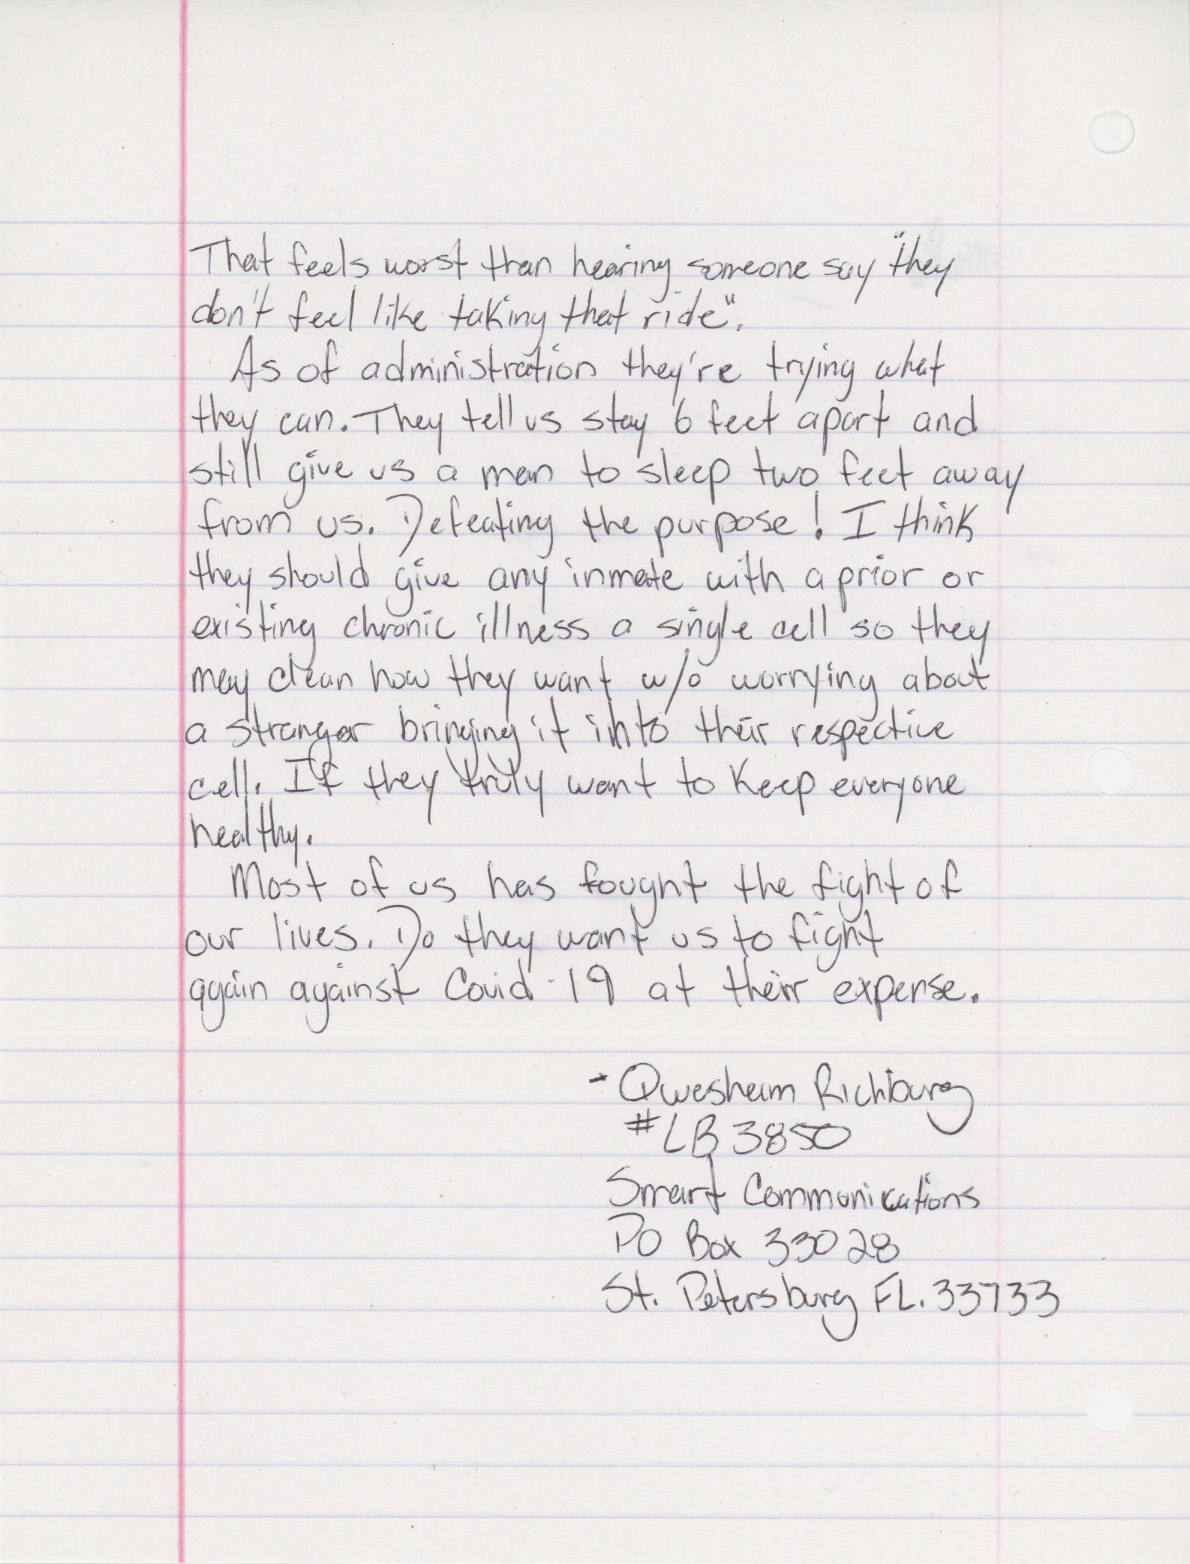 That feels worst than hearing someone say "they
don't feel like taking that ride".
As of administration they're trying what
they can. They tell us stay 6 feet apart and
still give us a man to sleep two feet away
from us. Defeating the purpose! I think
they should give any inmate with a prior or
existing chronic illness a single cell so they
may clean how they want w/o worrying about
a stranger bringing it into their respective
cell. If they truly want to keep everyone
healthy.
Most of us has fought the fight of
our lives. Do they want us to fight
again against Covid-19 at their expense.
- Qwesheim Richburg
#LB3850
Smart Communications
PO Box 33028
St. Petersburg FL. 33733